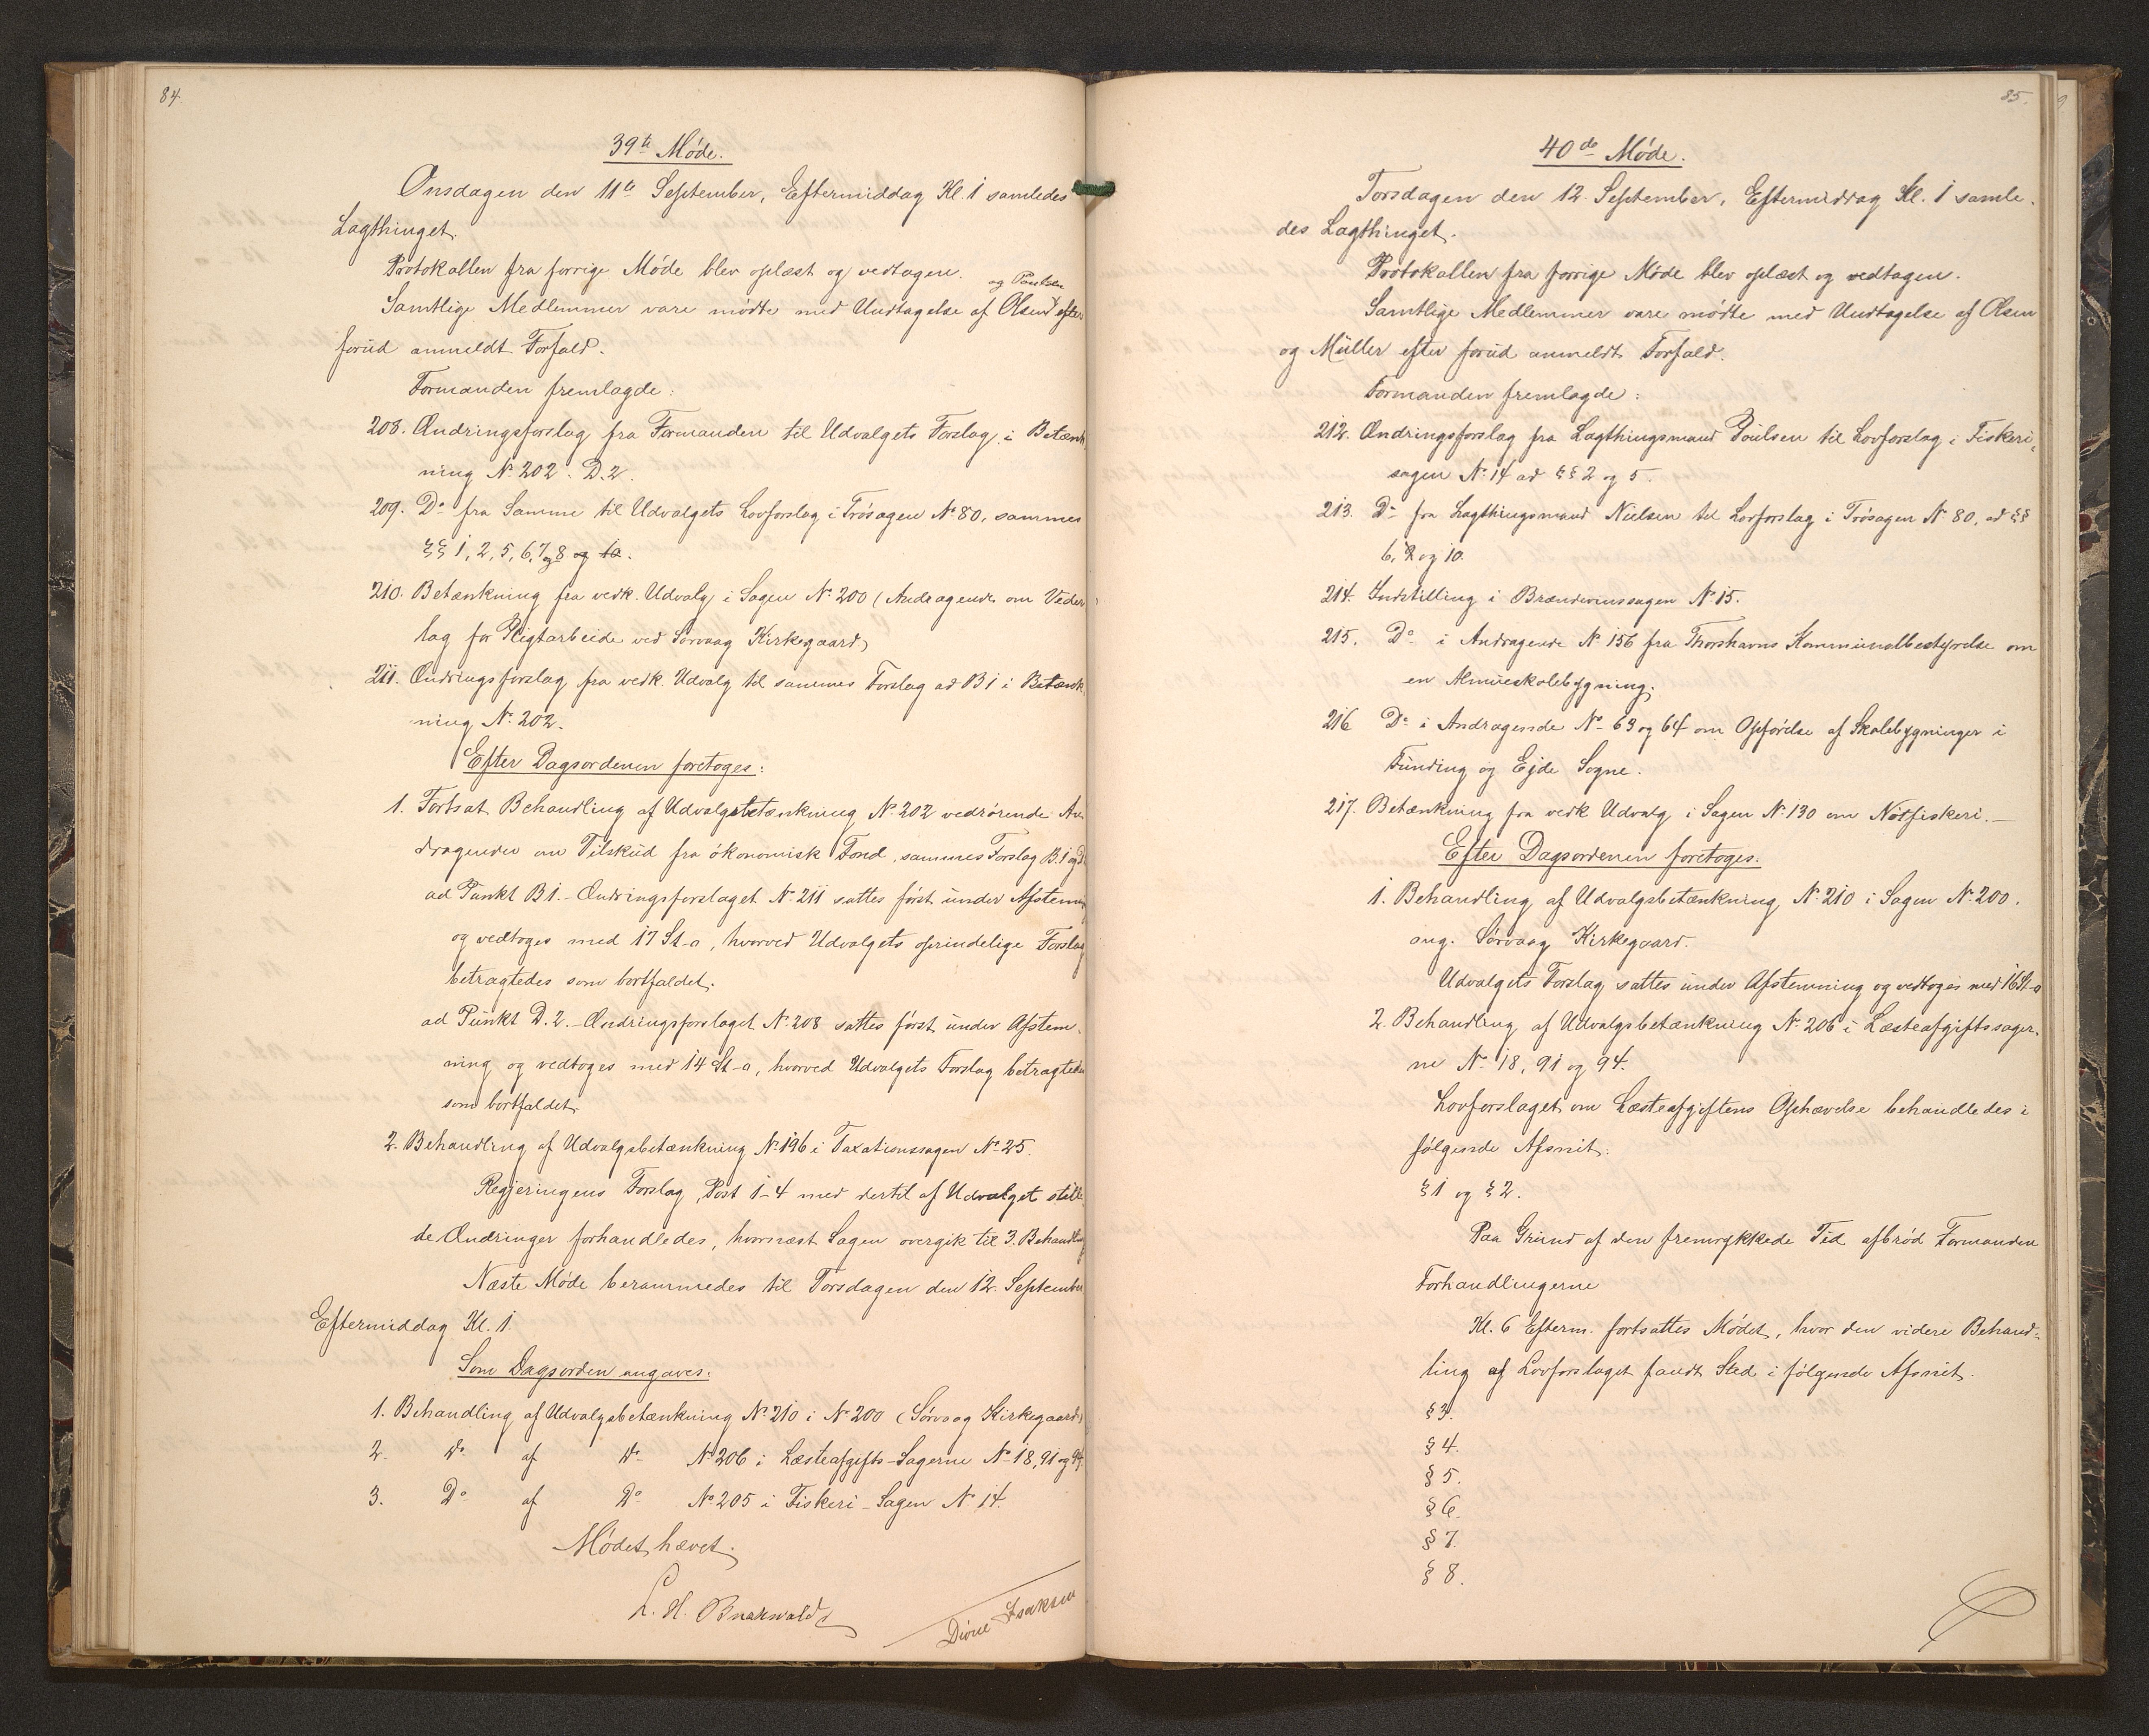 84.
39te Møde.
Onsdagen den 11te September, Eftermiddag Kl. 1 samledes
Lagthinget.
Protokollen fra forrige Møde blev oplæst og vedtagen.
og Poulsen
Samtlige Medlemmer vare mødte med Undtagelse af Olsen efter
forud anmeldt Forfald.
Formanden fremlagde:
208. Ændringsforslag fra Formanden til Udvalgets Forslag i Betænk
ning No 202. D.2.
209. Do fra Samme til Udvalgets Lovforslag i Trøsagen No 80, sammes
§§ 1, 2, 5, 6, 7 og 8 og 10.
210. Betænkning fra vedk. Udvalg i Sagen No 200 (Andragende om Veder
lag for Pligtarbeide ved Sørvaag Kirkegaard)
211. Ændringsforslag fra vedk. Udvalg til sammes Forslag ad B 1 i Betænk
ning No 202.
Efter Dagsordenen foretoges:
1. Fortsat Behandling af Udvalgsbetænkning No 202 vedrørende An
dragender om Tilskud fra økonomisk Fond, sammes Forslag B.1 og D
ad Punkt B 1. - Ændringsforslaget No 211 sattes først under Afstemn
og vedtoges med 17 St-a, hvorved Udvalgets oprindelige Forslag
betragtedes som bortfaldet.
ad Punkt D. 2. - Ændringsforslaget No 208 sattes først under Afstem-
ning og vedtoges med 14 St-a, hvorved Udvalgets Forslag betragtedes
som bortfaldet.
2. Behandling af Udvalgsbetænkning No 196 i Taxationssagen No 25.
Regjeringens Forslag, Post 1-4 med dertil af Udvalget stille
de Ændringer forhandledes, hvornæst Sagen overgik til 3. Behandling
Næste Møde berammedes til Torsdagen den 12. September
Eftermiddag Kl. 1.
Som Dagsorden angaves:
1. Behandling af Udvalgsbetænkning No 210 i No 200 (Sørvaag Kirkegaard)
2. Do af Do No 206 i Læsteafgifts-Sagerne No 18, 91 og 94
3. Do af Do No 205 i Fiskeri-Sagen No 14.
Mødet hævet.
L. H.
Isaksen
85.
40de Møde.
Torsdagen den 12. September, Eftermiddag Kl. 1 samle-
des Lagthinget.
Protokollen fra forrige Møde blev oplæst og vedtagen.
Samtlige Medlemmer vare mødte med Undtagelse af Olsen
og Müller efter forud anmeldt Forfald.
Formanden fremlagde:
212. Ændringsforslag fra Lagthingsmand Poulsen til Lovforslag i Fiskeri-
sagen No 14 ad §§ 2 og 5.
213. Do fra Lagthingsmand Nielsen til Lovforslag i Trøsagen No 80, ad §§
6, 8 og 10.
214. Indstilling i Brændevinssagen No 15.
215. Do i Andragende No 156 fra Thorshavns Kommunalbestyrelse om
en Almueskolebygning.
216 Do i Andragende No 63 og 64 om Opførelse af Skolebygninger i
Funding og Ejde Sogne.
217. Betænkning fra vedk Udvalg i Sagen No 130 om Notfiskeri. -
Efter Dagsordenen foretoges:
1. Behandling af Udvalgsbetænkning No 210 i Sagen No 200.
ang. Sørvaag Kirkegaard.
Udvalgets Forslag sattes under Afstemning og vedtoges med 16 St-a
2. Behandling af Udvalgsbetænkning No 206 i Læsteafgiftssager-
ne No 18, 91 og 94.
Lovforslaget om Læsteafgiftens Ophævelse behandledes i
følgende Afsnit:
§ 1 og § 2.
Paa Grund af den fremrykkede Tid afbrød Formanden
Forhandlingerne
Kl. 6 Efterm. fortsattes Mødet, hvor den videre Behand-
ling af Lovforslaget fandt Sted i følgende Afsnit.
§ 3.
§ 4.
§ 5.
§ 6.
§ 7.
§ 8.